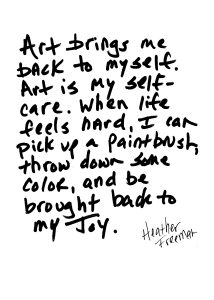 Art brings me
back to myself.
Art is my self-
care. When life
feels hard, I can
pick up a paintbrush,
throw down some
color, and be
brought back to
my Joy.
Heather
Freeman